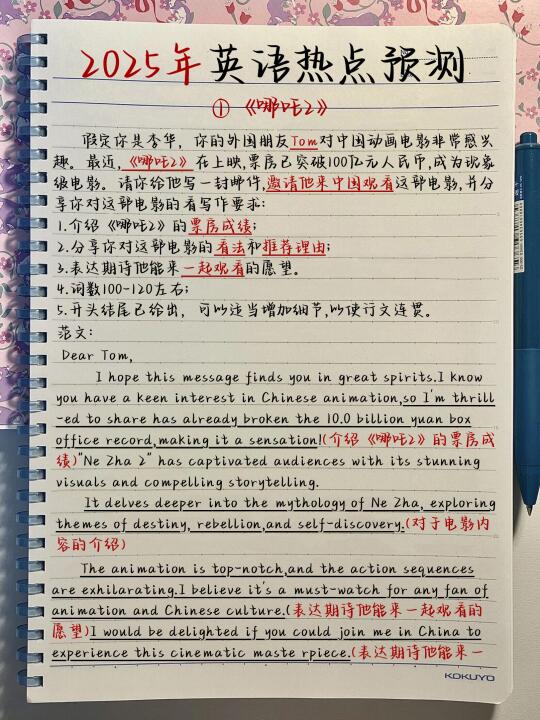 2025年英语热点预测
①《哪吒2》
假定你是李华，你的外国朋友Tom对中国动画电影非常感兴
趣。最近，《哪吒2》在上映，票房已突破100亿元人民币，成为现象
级电影。请你给他写一封邮件，邀请他来中国观看这部电影，并分
享你对这部电影的看写作要求：
1.介绍《哪吒2》的票房成绩；
2.分享你对这部电影的看法和推荐理由；
3.表达期待他能来一起观看的愿望。
4.词数100-120左右；
5.开头结尾已给出，可以适当增加细节，以使行文连贯。
范文：
Dear Tom,
I hope this message finds you in great spirits.I know
you have a keen interest in Chinese animation,so I'm thrill
-ed to share has already broken the 10.0 billion yuan box
office record,making it a sensation!(介绍《哪吒2》的票房成
绩)"Ne Zha 2" has captivated audiences with its stunning
visuals and compelling storytelling.
It delves deeper into the mythology of Ne Zha, exploring
themes of destiny, rebellion,and self-discovery.(对于电影内
容的介绍)
The animation is top-notch,and the action sequences
are exhilarating.I believe it's a must-watch for any fan of
animation and Chinese culture.(表达期待他能来一起观看的
愿望)I would be delighted if you could join me in China to
experience this cinematic maste rpiece.(表达期待他能来一
KOKUYO